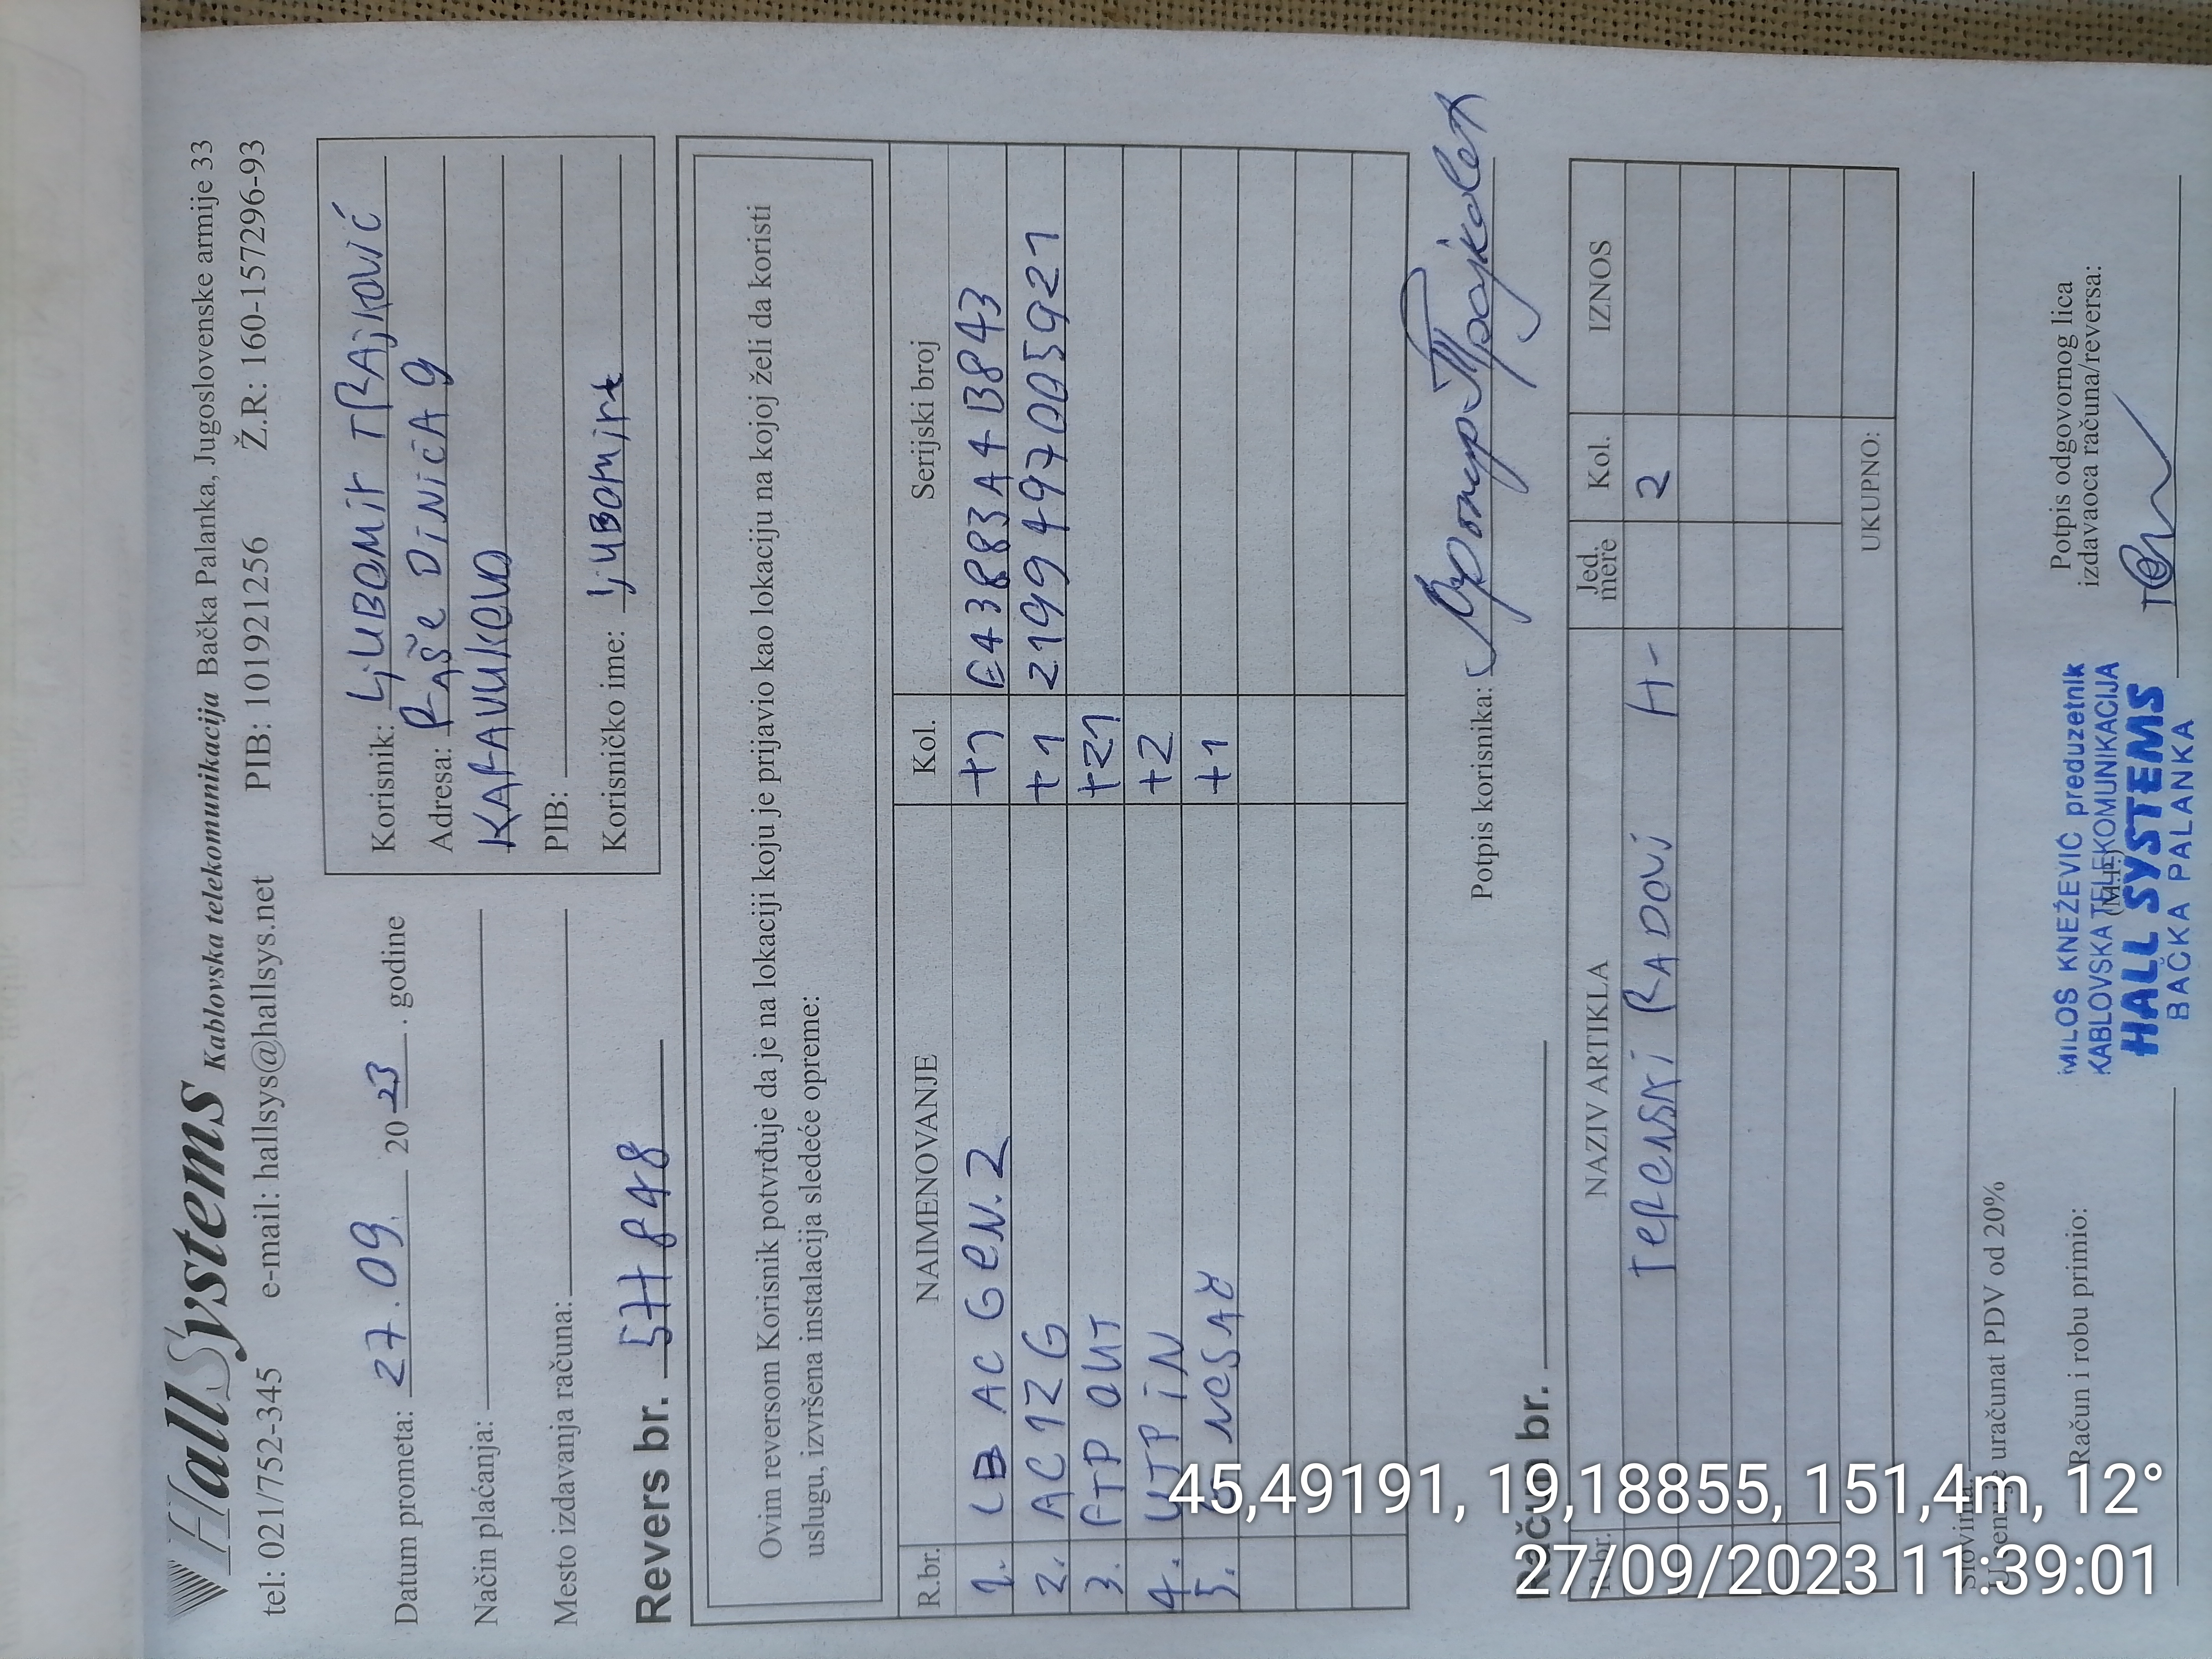 HallSystems Kablovska telekomunikacija Bačka Palanka, Jugoslovenske armije 33
tel: 021/752-345 e-mail: hallsys@hallsys.net PIB: 101921256 Ž.R: 160-157296-93
Datum prometa: 27.09. 2023. godine
Način plaćanja:
Mesto izdavanja računa:
Korisnik: LjUBOMir TRAjKOVIĆ
Adresa: RAŠe DiNiĆA 9
KArAVUKOVO
PIB:
Korisničko ime: ljUBOMirt
Revers br. 577 848
Ovim reversom Korisnik potvrđuje da je na lokaciji koju je prijavio kao lokaciju na kojoj želi da koristi
uslugu, izvršena instalacija sledeće opreme:
R.br. NAIMENOVANJE Kol. Serijski broj
1. LB AC GeN.2 +1 E43883A4B843
2. AC12G +1 2199497005921
3. FTP OUT +21
4. UTP iN +2
5. +1
Potpis korisnika:
Račun br.
R.br. NAZIV ARTIKLA Jed. mere Kol. IZNOS
TereNSKi RADOVi H- 2
UKUPNO:
Slovima:
uračunat PDV od 20%
Račun i robu primio:
(M.P.)
MILOŠ KNEŽEVIĆ preduzetnik
KABLOVSKA TELEKOMUNIKACIJA
HALL SYSTEMS
BAČKA PALANKA
Potpis odgovornog lica
izdavaoca računa/reversa:
45,49191, 19,18855, 151,4m, 12°
27/09/2023 11:39:01